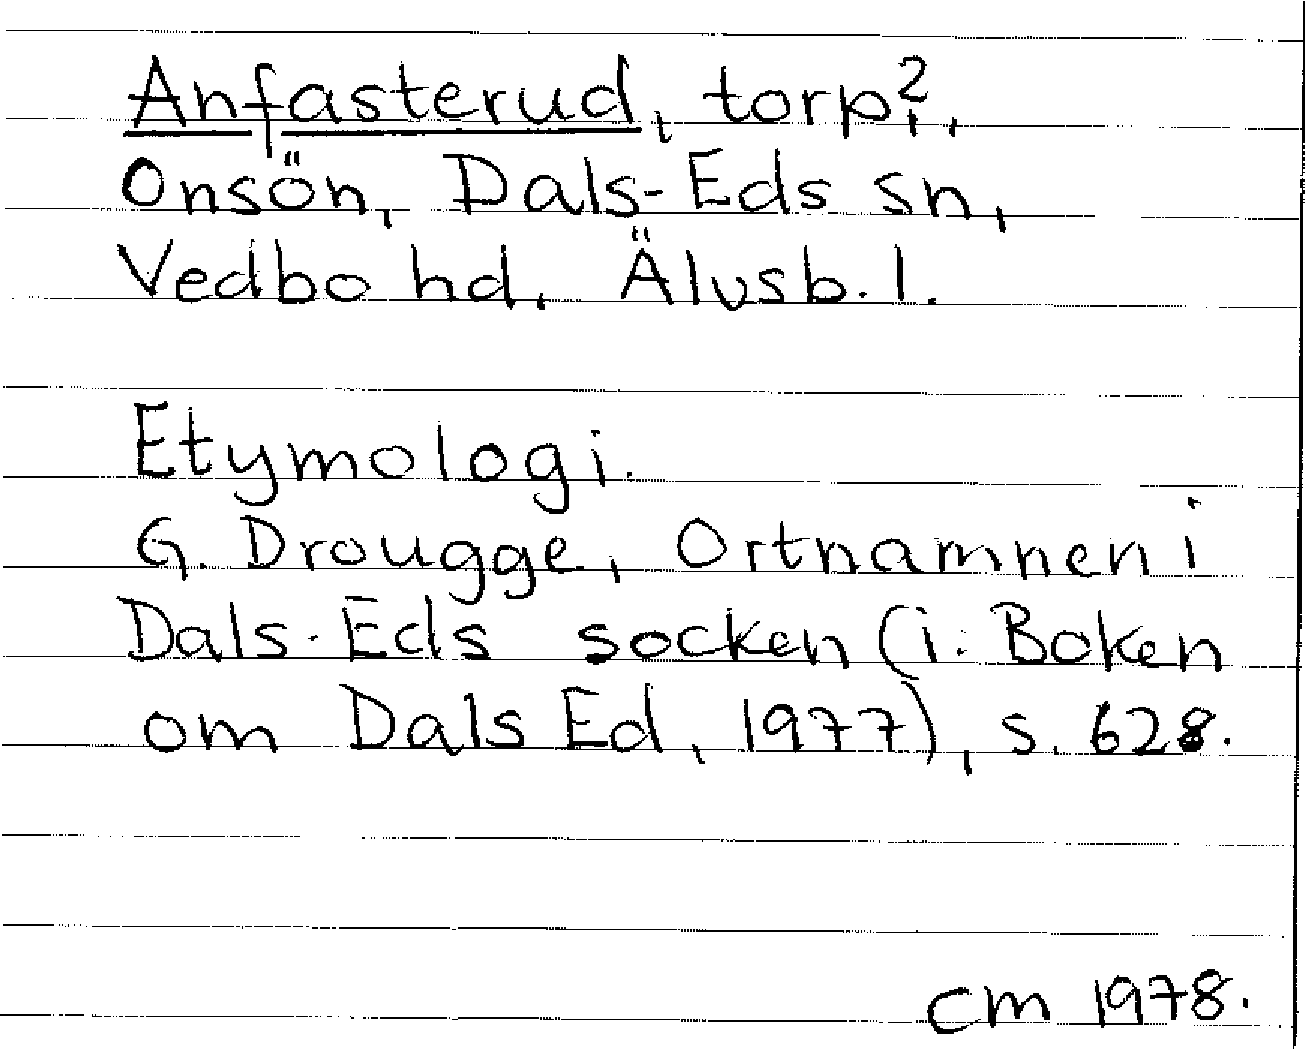 Anfasterud, torp?,
Onsön, Dals-Eds sn,
Vedbo hd, Älvsb. l.
Etymologi.
G. Drougge, Ortnamnen i
Dals-Eds socken (i: Boken
om Dals Ed, 1977), s. 628.
cm 1978.